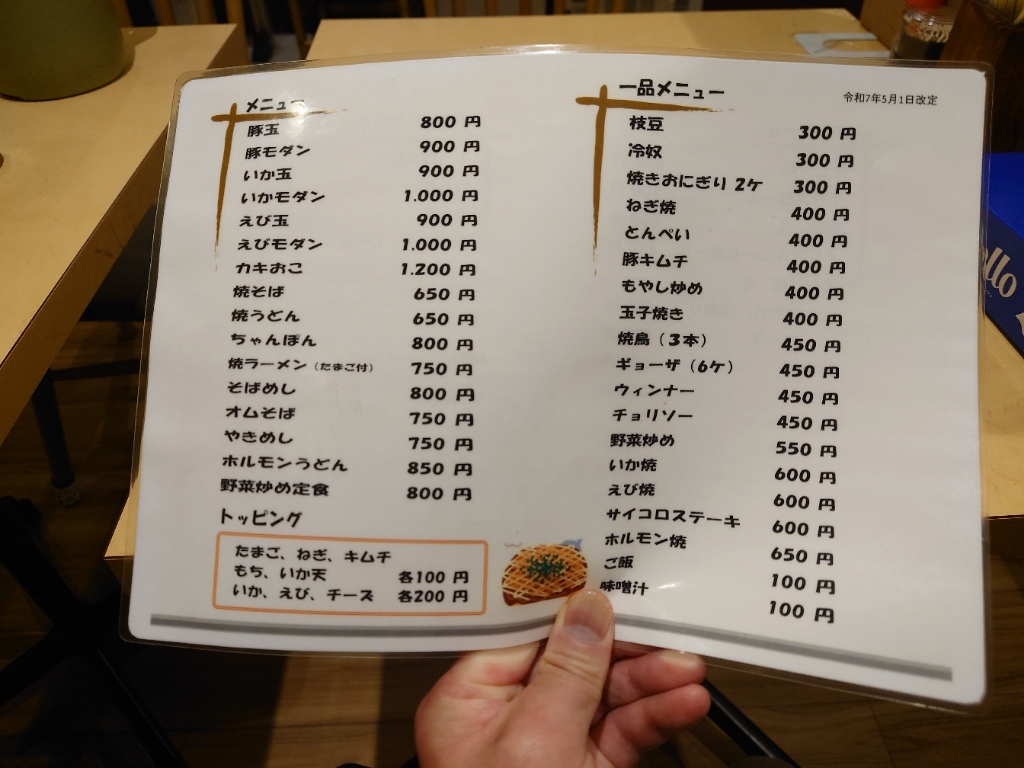 メニュー
豚玉 800 円
豚モダン 900 円
いか玉 900 円
いかモダン 1.000 円
えび玉 900 円
えびモダン 1.000 円
カキおこ 1.200 円
焼そば 650 円
焼うどん 650 円
ちゃんぽん 800 円
焼ラーメン（たまご付） 750 円
そばめし 800 円
オムそば 750 円
やきめし 750 円
ホルモンうどん 850 円
野菜炒め定食 800 円
トッピング
たまご、ねぎ、キムチ
もち、いか天 各100 円
いか、えび、チーズ 各200 円
一品メニュー
令和7年5月1日改定
枝豆 300 円
冷奴 300 円
焼きおにぎり 2ケ 300 円
ねぎ焼 400 円
とんぺい 400 円
豚キムチ 400 円
もやし炒め 400 円
玉子焼き 400 円
焼鳥（3本） 450 円
ギョーザ（6ケ） 450 円
ウィンナー 450 円
チョリソー 450 円
野菜炒め 550 円
いか焼 600 円
えび焼 600 円
サイコロステーキ 600 円
ホルモン焼 650 円
ご飯 100 円
味噌汁 100 円